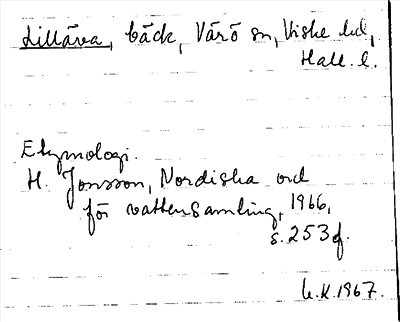 Lillåva, bäck, Värö sn, Viske hd,
Hall. l.
Etymologi.
H. Jonsson, Nordiska ord
för vattensamling, 1966,
s. 253 f.
U.K. 1967.